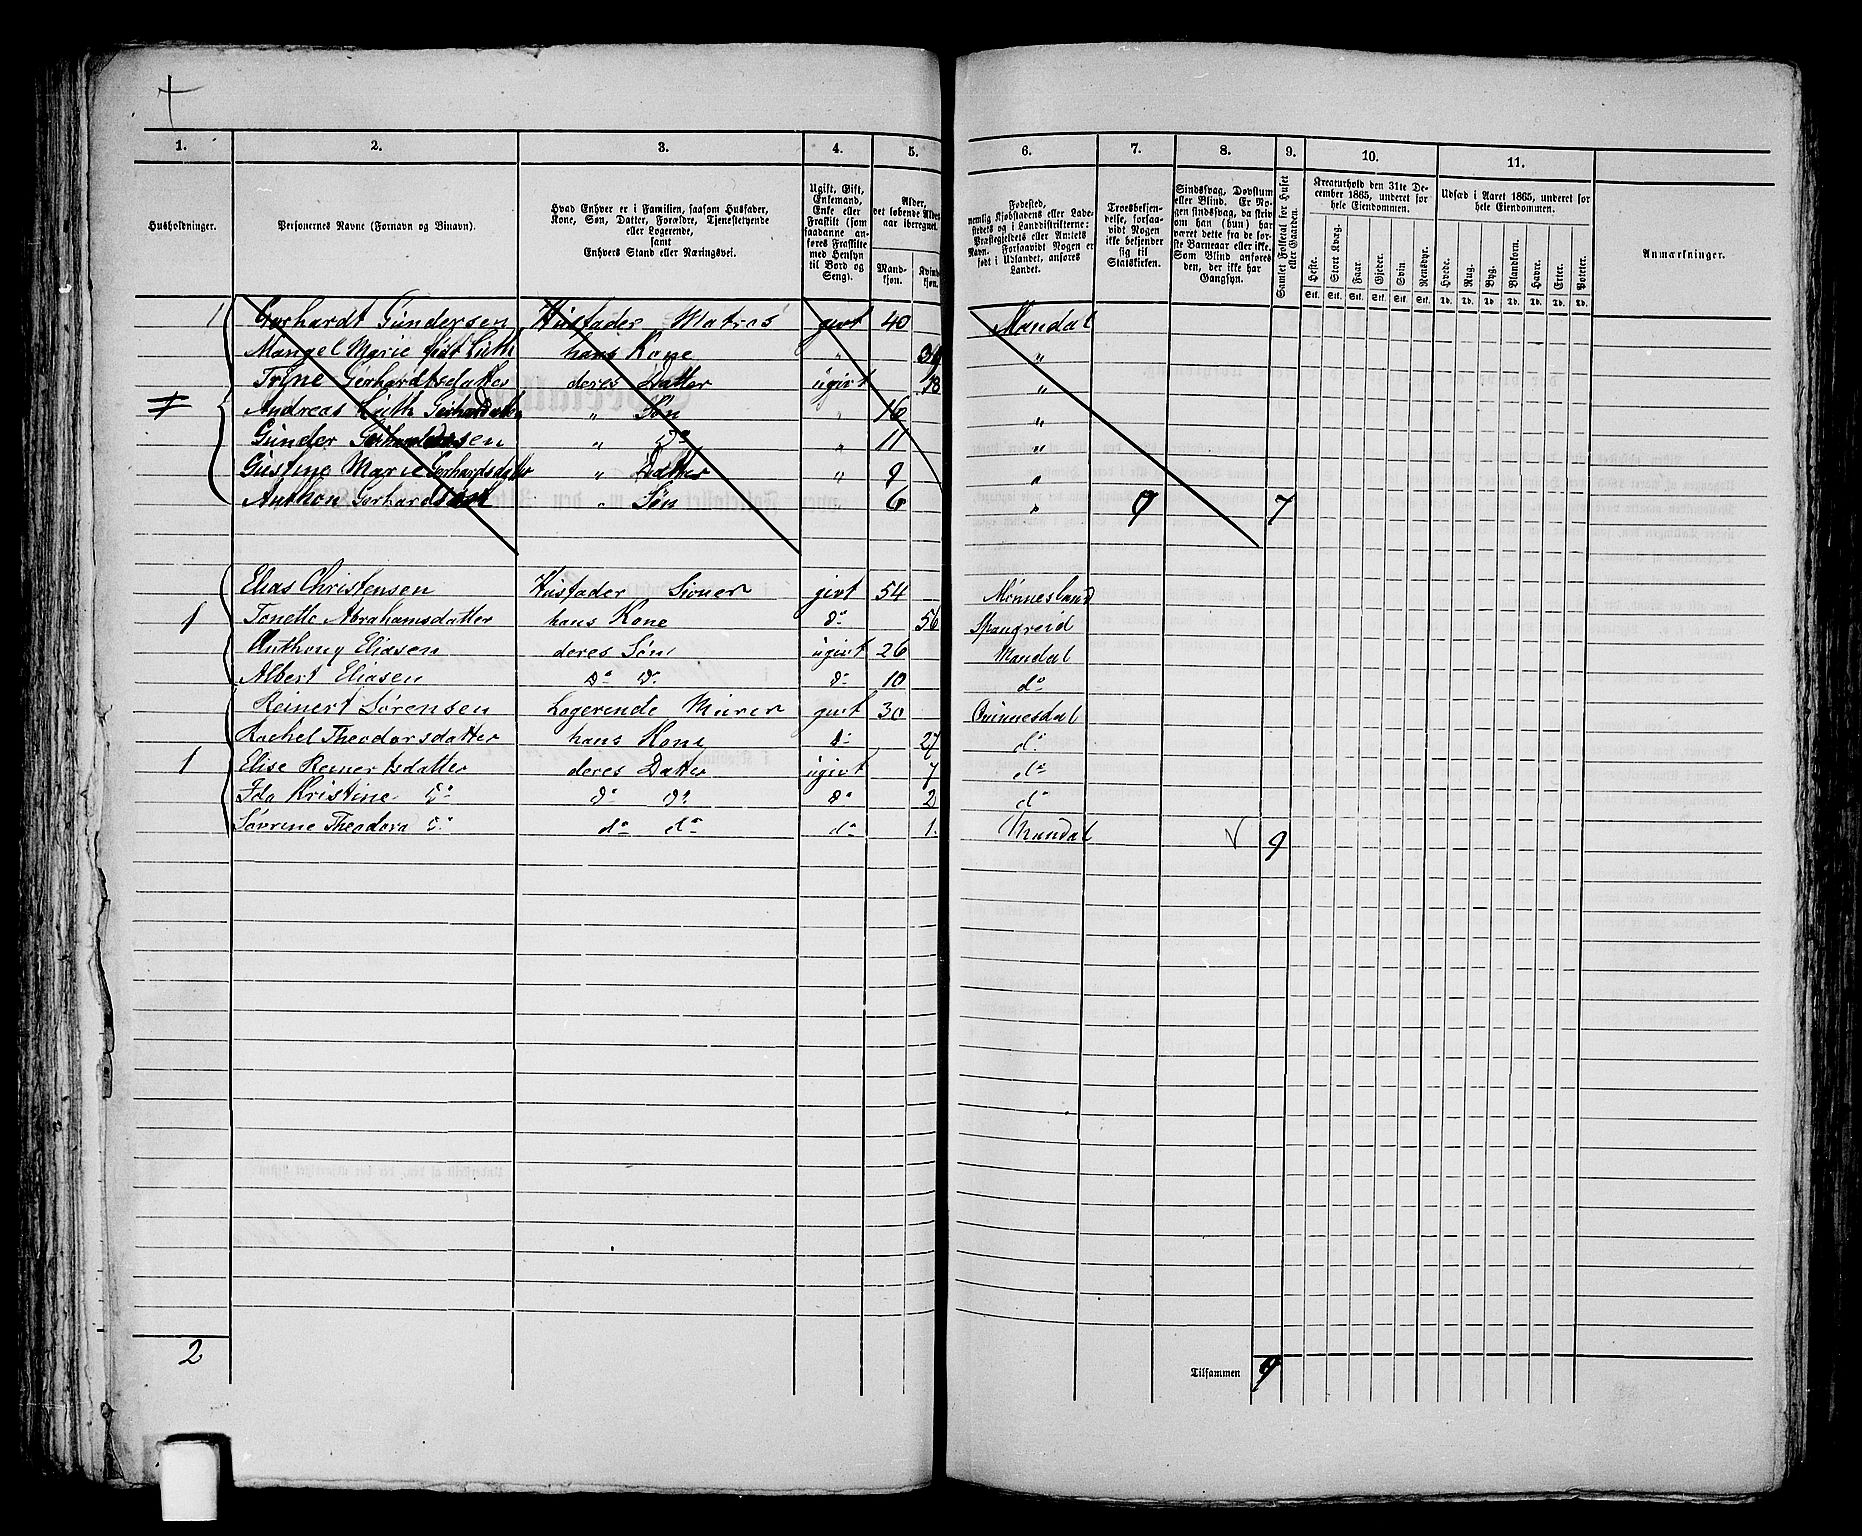 1. 2. 3. 4. 5. 6. 7. 8. 9. 10. 11.
Husholdninger.
Personernes Navne (Fornavn og Binavn).
Hvad Enhver er i Familien, saasom Husfader, Kone, Søn, Datter, Forældre, Tjenestetyende eller Logerende, samt Enhvers Stand eller Næringsvei.
Ugift, Gift, Enkemand, Enke eller Fraskilt (som saadanne anføres Fraskilte med Hensyn til Bord og Seng).
Alder, det løbende Alders-aar iberegnet.
Mandkjøn. Kvindekjøn.
Fødested, nemlig Kjøbstadens eller Ladestedets og i Landdistrikterne: Præstegjeldets eller Amtets Navn. Forsaavidt Nogen er født i Udlandet, anføres Landet.
Troesbekjendelse, forsaavidt Nogen ikke bekjender sig til Statskirken.
Sindssvag, Døvstum eller Blind. Er Nogen sindssvag, da skriv om han (hun) har været dette fra de første Barneaar eller ikke. Som Blind anføres den, der ikke har Gangsyn.
Samlet Folketal for Huset eller Gaarden.
Kreaturhold den 31te December 1865, underet for hele Eiendommen.
Heste. Stort Kvæg. Faar. Gjeder. Svin Rensdyr.
Stk. Stk. Stk. Stk. Stk. Stk.
Udsæd i Aaret 1865, underet for hele Eiendommen.
Hvede. Rug. Byg. Blandkorn. Havre. Erter. Poteter.
Td. Td. Td. Td. Td. Td. Td.
Anmærkninger.
1 Gerhardt Gundersen Husfader Matros givt 40 Mandal
Marie Luth hans Kone " "
Tryne Gerhardtsdatter deres Datter ugivt 18 "
Andreas Luth " Søn " 16 "
Gunder " Do " 11 "
Gustine Marie Gerhardsdatter " Datter " 9 "
Anthon Gerhardsen " Søn " 6 " 7
Elias Christensen Husfader givt 54
1 Tonette Abrahamsdatter hans Kone do 56 Spangreid
Anthony Eliasen deres Søn ugivt 26 Mandal
Albert Eliasen Do Do Do 10 do
Reinert Sørensen Logerende Murer givt 30 Qvinnesdal
Rachel Theodorsdatter hans Kone Do 27 do
1 Elise Reinertsdatter deres Datter ugivt 7 do
Ida Kristine Do Do Do Do 2 do
Sørine Theodora Do do do do 1. Mandal 9
2
Tilsammen 9